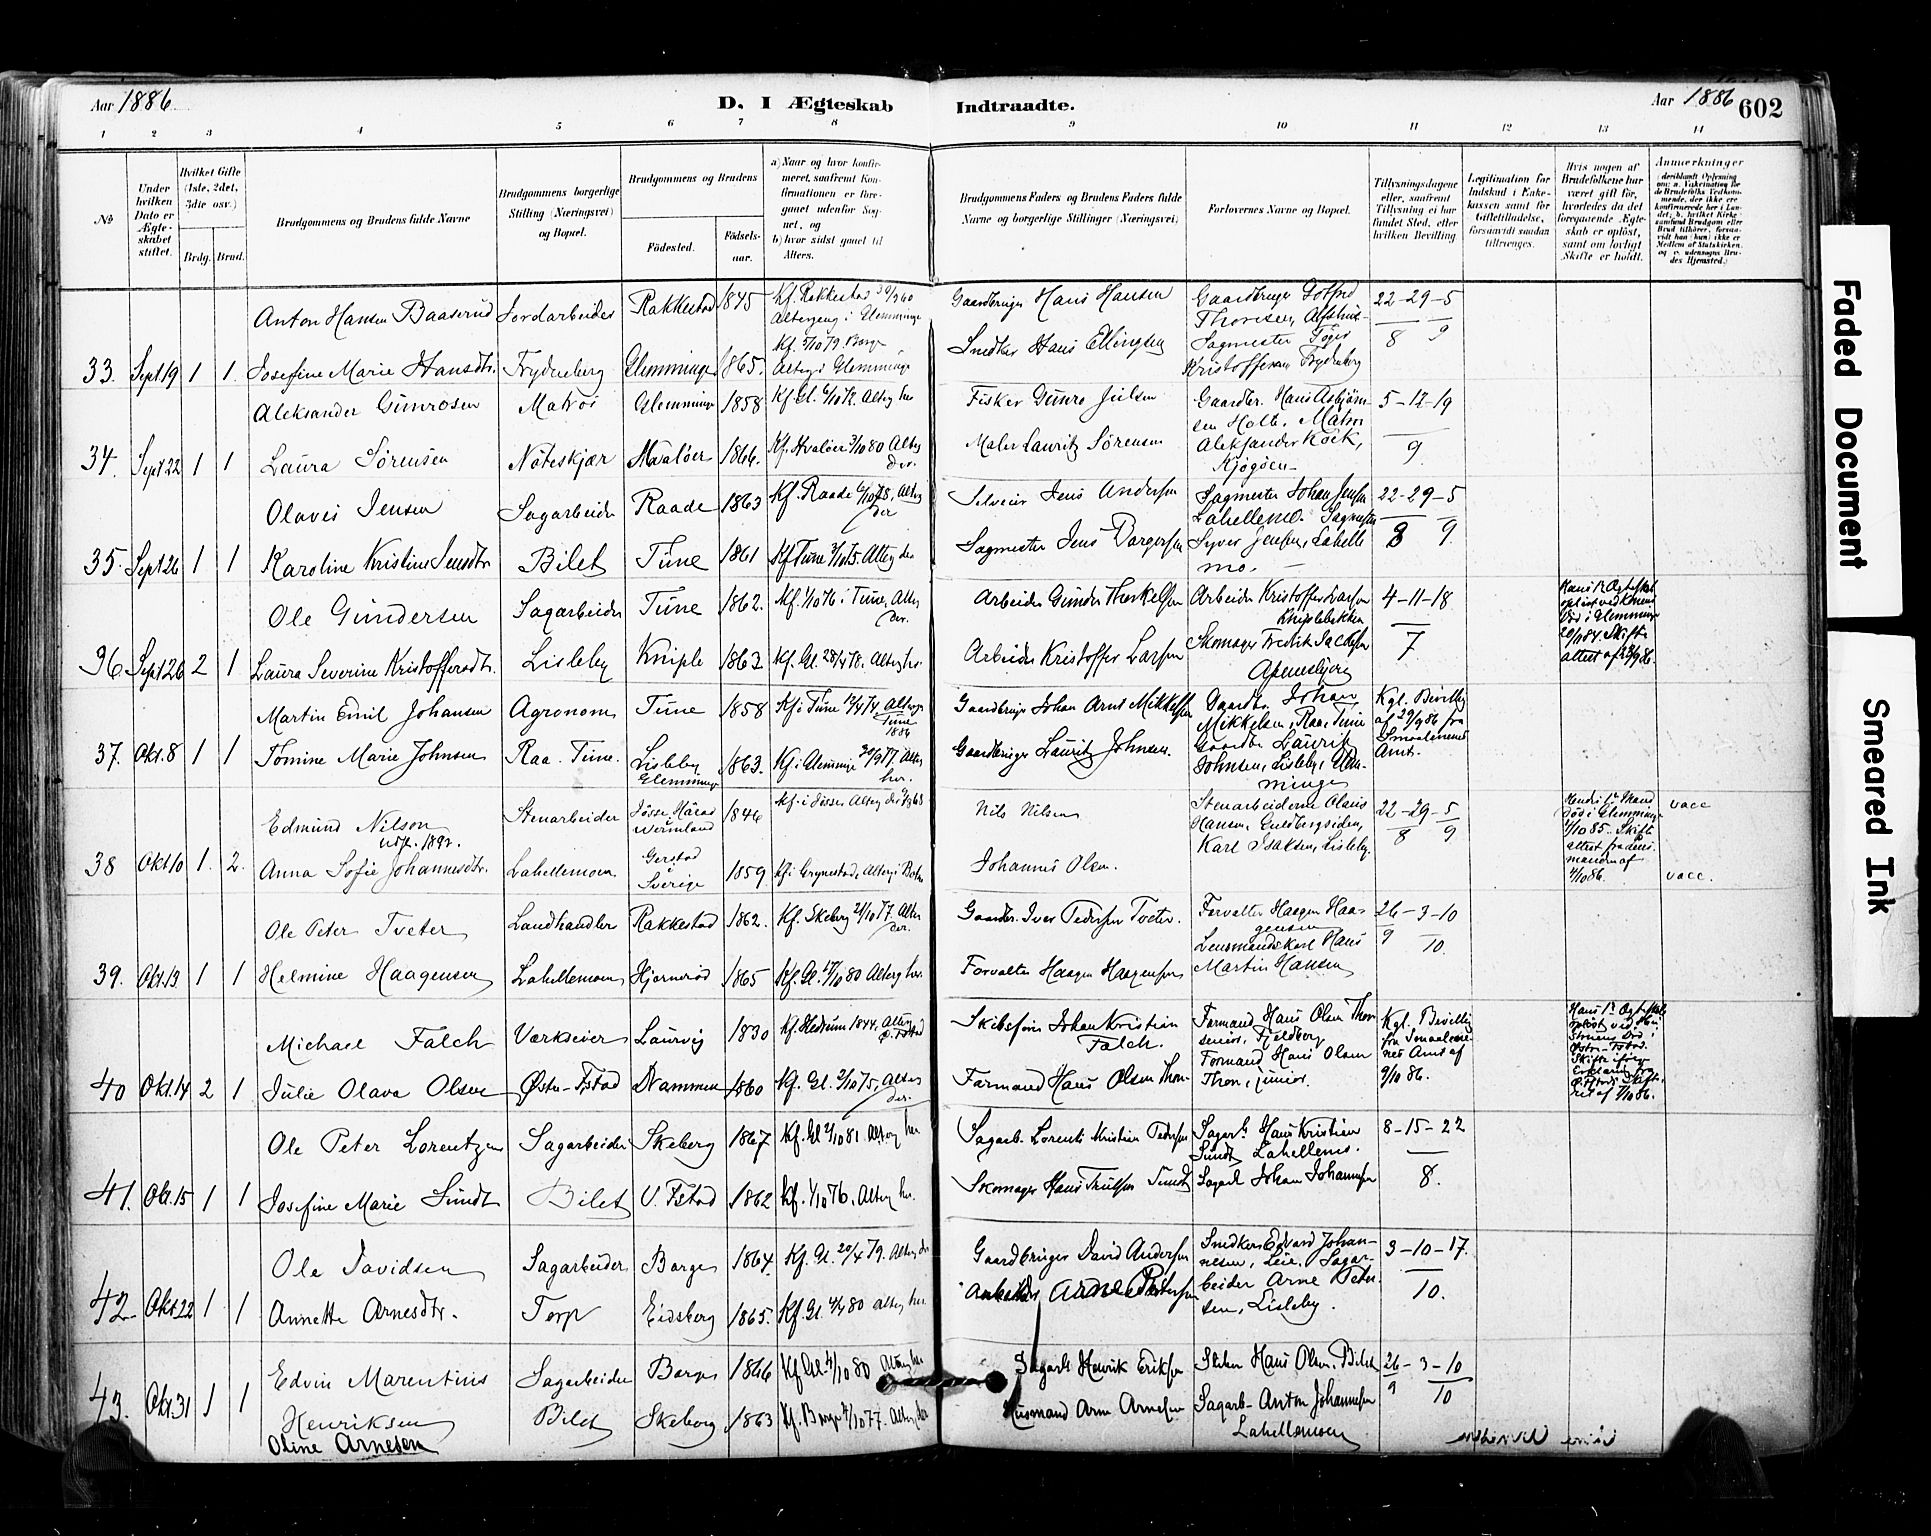 Aar 1886
D. I Ægteskab Indtraadte.
Aar 1886 602
1 2 3 4 5 6 7 8 9 10 11 12 13 14
№
Under hvilken Dato er Ægteskabet stiftet.
Hvilket Gifte (1ste, 2det, 3die osv.)
Brdg. Brud.
Brudgommens og Brudens fulde Navne
Brudgommens borgerlige Stilling (Næringsvei) og Bopæl.
Brudgommens og Brudens
Födested. Födsels-aar.
a) Naar og hvor konfirmeret, saafremt Konfirmationen er foregaaet udenfor Sognet, og
b) hvor sidst gaaet til Alters.
Brudgommens Faders og Brudens Faders fulde Navne og borgerlige Stillinger (Næringsvei)
Forlovernes Navne og Bopæl.
Tillysningsdagene eller, saafremt Tillysning ei har fundet Sted, efter hvilken Bevilling
Legitimation for Indskud i Enkekassen samt for Giftetilladelse, forsaavidt saadan tiltrænges.
Hvis nogen af Brudefolkene har været gift för, hvorledes da det foregaaende Ægteskab er oplöst, samt om lovligt Skifte er holdt.
Anmerkninger
Anton Hansen Baaserud Jordarbeider Rakkestad 1845 Kf. Rakkestad 30/9 60 Gaardbruger Hans Hansen Gaardbruger Gotfred 22-29-5
Altergang i Glemminge Thoresen,
Kf. 5/10 79 Borge Snedker Hans Ellingsen Sagmester 8 9
33. Sept 19 1 1. Josefine Marie Hansdtr. Trydneberg Glemminge 1865. Alterg i Glemminge Kristoffersen
Aleksander Gunrosen Matros Glemminge 1858 Kf. Gl. 6/10 72. Alterg her Fisker Gunro Julsen Gaardbr. Hans Asbjörn- 5-12-19
sen Holte. Matros
34. Sept 22 1 1 Laura Sörensen Nöteskjær Hvalöer 1866. Kf. Hvalöer 3/10 80 Alterg der. Maler Lauritz Sörensen Aleksander Kock, 9
Kjøgöen
Olaves Jensen Sagarbeider Raade 1863 Kf. Raade 6/10 78, Alterg der Selveier Jens Andersen Sagmester Johan Jensen 22-29-5
Lahellemo. Sagmester
35. Sept 26 1 1 Karoline Kristine Jensdtr Bilet Tune 1861 Kf Tune 3/10 75. Alterg der Sagmester Jens Syver Jensen, Lahelle 8 9
mo.
Ole Gundersen Sagarbeider Tune 1862. Kf. 1/10 76 i Tune, Alterg der. Arbeider Gunder Therkelsen Arbeider Kristoffer Larsen 4-11-18
Kniplebakken
36. Sept 26 2 1 Laura Severine Kristoffersdtr. Lisleby Kniple 1863 Kf. Gl. 28/4 78. Alterg her Arbeider Kristoffer Larsen Skomager Fredrik Jacobsen 7
Apenesbjerg
Hans 1e Ægteskab oplöst ved Konens Död i Glemminge Skifteattest af
Martin Emil Johansen Agronom Tune 1858 Kf i Tune 12/4 74 Alterg Tune 1886 Gaardbruger Johan Arnt Mikkelsen Gaardbr. Johan Mikkelsen, Raa, Tune Kgl. Bevilling
af 29/9 86 fra
37. Okt. 8 1 1 Tomine Marie Johnsen Raa. Tune. Lisleby Glemminge 1863. Kf. i Glemminge 30/9 77. Alterg her. Gaardbruger Lauritz Johnsen. Gaardbr Lauritz Johnsen, Lisleby, Glem-minge Smaalenenes Amt.
Edmund Nilson Stenarbeider Jösse Härad Wermland 1846 Kf. i Jösse. Nils Nilsen Stenarbeiderne Olaus 22-29-5
utf. 1892. Hansen, Guldbergsiden, 8 9
Karl Isaksen, Lisleby.
38 Okt 10 1. 2. Anna Sofie Johannesdtr. Lahellemoen Sverige 1859 Johannes Olsen.
Hendes 1e Mand död i Glemminge 1/10 85. Skifteattest fra Lensmanden af 4/10 86.
vacc
vacc.
Ole Peter Tveter Landhandler Rakkestad 1862. Kf. Skeberg 21/10 77. Alterg der. Gaardbr. Iver Pedersen Tveter. Forvalter Haagen Haa- 26-3-10
gensen 9 10.
Lensmandskarl Hans
39. Okt. 13 1 1 Helmine Haagensen Lahellemoen Hjørneröd 1865 Kf. Gl. 17/10 80 Alterg her. Forvalter Haagen Haagensen Martin Hansen
Michael Falch Værkseier Laurvig 1830 Kf. Hedrum 1844, Alterg Ö. Fstad Skibsförer Johan Kristian Falch. Formand Hans Olsen Thon Kgl. Bevilling
senior, Fjeldberg fra Smaalene-
Formand Hans Olsen nes Amt af
40 Okt. 14 2 1 Julie Olava Olsen Østre-Fstad Drammen 1860 Kf. Gl. 3/10 75, Alterg der. Formand Hans Olsen Thon Thon, junior. 9/10 86.
Hans 1e Ægteskab oplöst ved
Ole Peter Lorentzen Sagarbeider Skeberg 1867 Kf. Gl 2/10 81. Alterg her Sagarb. Lorents Kristian Pedersen Sagarb. Hans Kristian 8-15-22
Sundt Lahellemo.
41. Okt. 15 1 1 Josefine Marie Sundt Bilet V. Fstad 1862 Kf. 1/10 76. Alterg her. Skomager Hans Sundt Sagarb Johan Johannesen 8.
Ole Davidsen Sagarbeider Borge 1864. Kf. Gl. 20/4 79. Alterg der Gaardbruger David Andersen Snedker Edvard Johan- 3-10-17.
nesen, Leie, Sagar-
42. Okt 22 1 1 Annette Arnesdtr. Torp Eidsberg 1865. Kf. Gl. 4/4 80 Alterg her. Arbeider Arne Pettersen beider Arne Peter- 10.
sen, Lisleby.
Edvin Marentius Sagarbeider Borge 1866 Kf. Gl. 4/10 80 Alterg her Sagarb Henrik Eriksen Hans Olsen, Bilet 26-3-10
9 10
43. Okt. 31 1 1 Henriksen Bilet Skeberg 1863 Kf. Borge 7/10 77. Alterg her Husmand Arne Arnesen Sagarb. Anton Johannesen
Oline Arnesen Lahellemoen
Faded Document
Smeared Ink